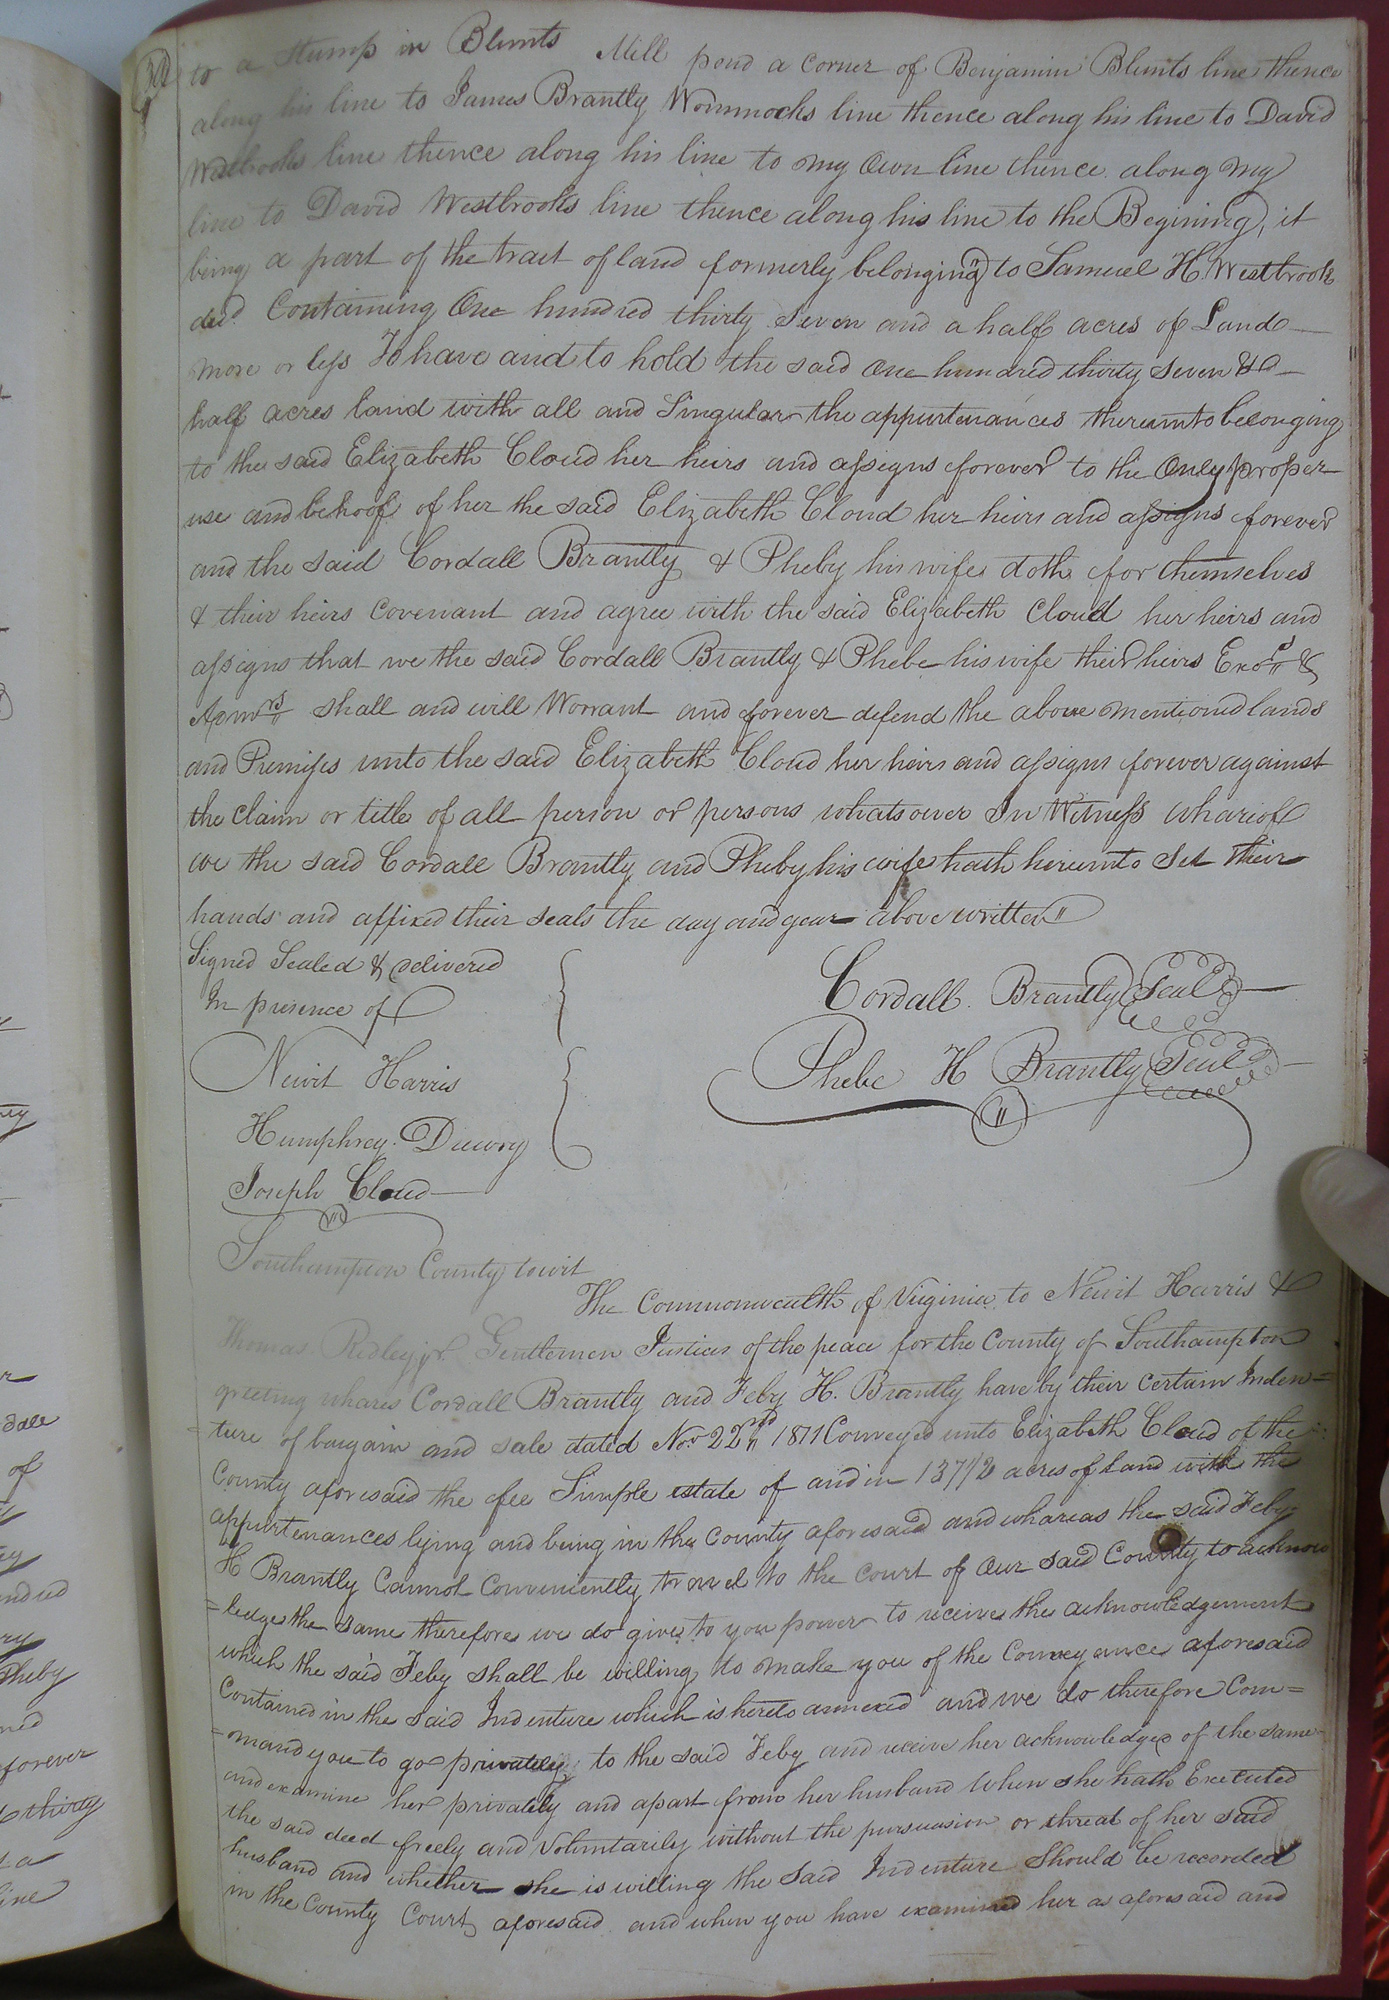 to a Stump in Blunts Mill pond a corner of Benjamin Blunts line thence
along his line to James Brantly Wommocks line thence along his line to David
Westbrooks line thence along his line to my Own line thence along my
line to David Westbrooks line thence along his line to the Begining, it
being a part of the tract of land formerly belonging to Samuel H. Westbrook
decd. Containing One hundred thirty Seven and a half acres of Land
more or less To have and to hold the said One hundred thirty Seven &
half acres land with all and Singular the appurtenances thereunto belonging
to the said Elizabeth Cloud her heirs and assigns forever to the Only proper
use and behoof of her the said Elizabeth Cloud her heirs and assigns forever
and the said Cordall Brantly & Pheby his wife doth for themselves
& their heirs Covenant and agree with the said Elizabeth Cloud her heirs and
assigns that we the said Cordall Brantly & Phebe his wife their heirs Exors &
Admrs shall and will Worrant and forever defend the above mentioned lands
and Premises unto the said Elizabeth Cloud her heirs and assigns forever against
the claim or title of all person or persons whatsoever In Witness whariof
we the said Cordall Brantly and Pheby his wife hath hereunto Set their
hands and affixed their seals the day and year above written
Signed Sealed & delivered
In presence of
Cordall Brantly Seal
Phebe H Brantly Seal
Newit Harris
Humphrey Drewry
Joseph Cloud
Southampton County towit
The Commonwealth of Virginia to Newit Harris &
Thomas Ridley jr. Gentlemen Justices of the peace for the County of Southampton
greeting whares Cordall Brantly and Feby H. Brantly have by their certain Inden=
ture of bargain and sale dated Nor 22nd 1811 Conveyed unto Elizabeth Cloud of the
County aforesaid the fee Simple estate of and in 137 1/2 acres of land with the
appurtenances lying and being in the County aforesaid and whareas the said Feby
H Brantly Cannot Conveniently travel to the Court of Our said County to acknow
=ledge the same therefore we do give to you power to receive the acknowledgement
which the said Feby shall be willing to make you of the Conveyance aforesaid
Contained in the said Indenture which is hereto annexed and we do therefore Com=
=mand you to go privately to the said Feby and receive her acknowledge of the same
and examine her privately and apart from her husband When she hath Executed
the said deed freely and Voluntarily without the pursuasion or threat of her said
husband and whether she is willing the said Indenture Should be recorded
in the County Court aforesaid and when you have examined her as aforesaid and